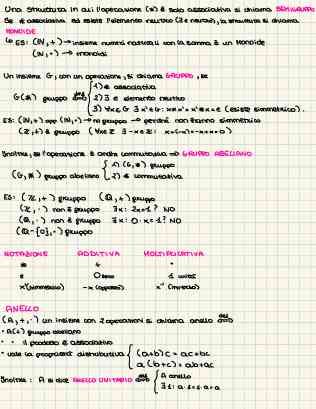 Una struttura in cui l'operazione (*) è solo associativa si chiama SEMIGRUPPO
Se è associativa ed esiste l'elemento neutro (∃ e neutro), la struttura si chiama
MONOIDE
↳ ES: (ℕ,+) → insieme numeri naturali con la somma è un Monoide
(ℕ,·) → monoidi
Un insieme G, con un'operazione, si chiama GRUPPO, se
G(*) gruppo def⟺ { 1) è associativa
2) ∃ e elemento neutro
3) ∀x∈G ∃ x'∈G: x*x'=x'*x=e (esiste simmetrico).
ES: (ℕ,+) opp (ℕ,·) → no gruppo → perché non hanno simmetrico
(ℤ,+) è gruppo (∀x∈ℤ ∃ -x∈ℤ: x+(-x)=-x+x=0)
Inoltre, se l'operazione è anche commutativa → GRUPPO ABELIANO
(G,*) gruppo abeliano { 1) (G,*) gruppo
2) è commutativa
ES: (ℤ,+) gruppo (ℚ,+) gruppo
(ℤ,·) non è gruppo ∃x: 2x=1? NO
(ℚ,·) non è gruppo ∃x: 0·x=1? NO
(ℚ-{0},·) gruppo
NOTAZIONE ADDITIVA MOLTIPLICATIVA
* + ·
e 0 zero 1 unità
x' (simmetrico) -x (opposto) x⁻¹ (inverso)
ANELLO
(A,+,·) un insieme con 2 operazioni si chiama anello def⟺
• A(+) gruppo abeliano
• " il prodotto è associativo
• vale la proprietà distributiva { (a+b)c = ac+bc
a(b+c) = ab+ac
Inoltre: A si dice ANELLO UNITARIO def⟺ { A anello
∃ 1: a·1=1·a=a